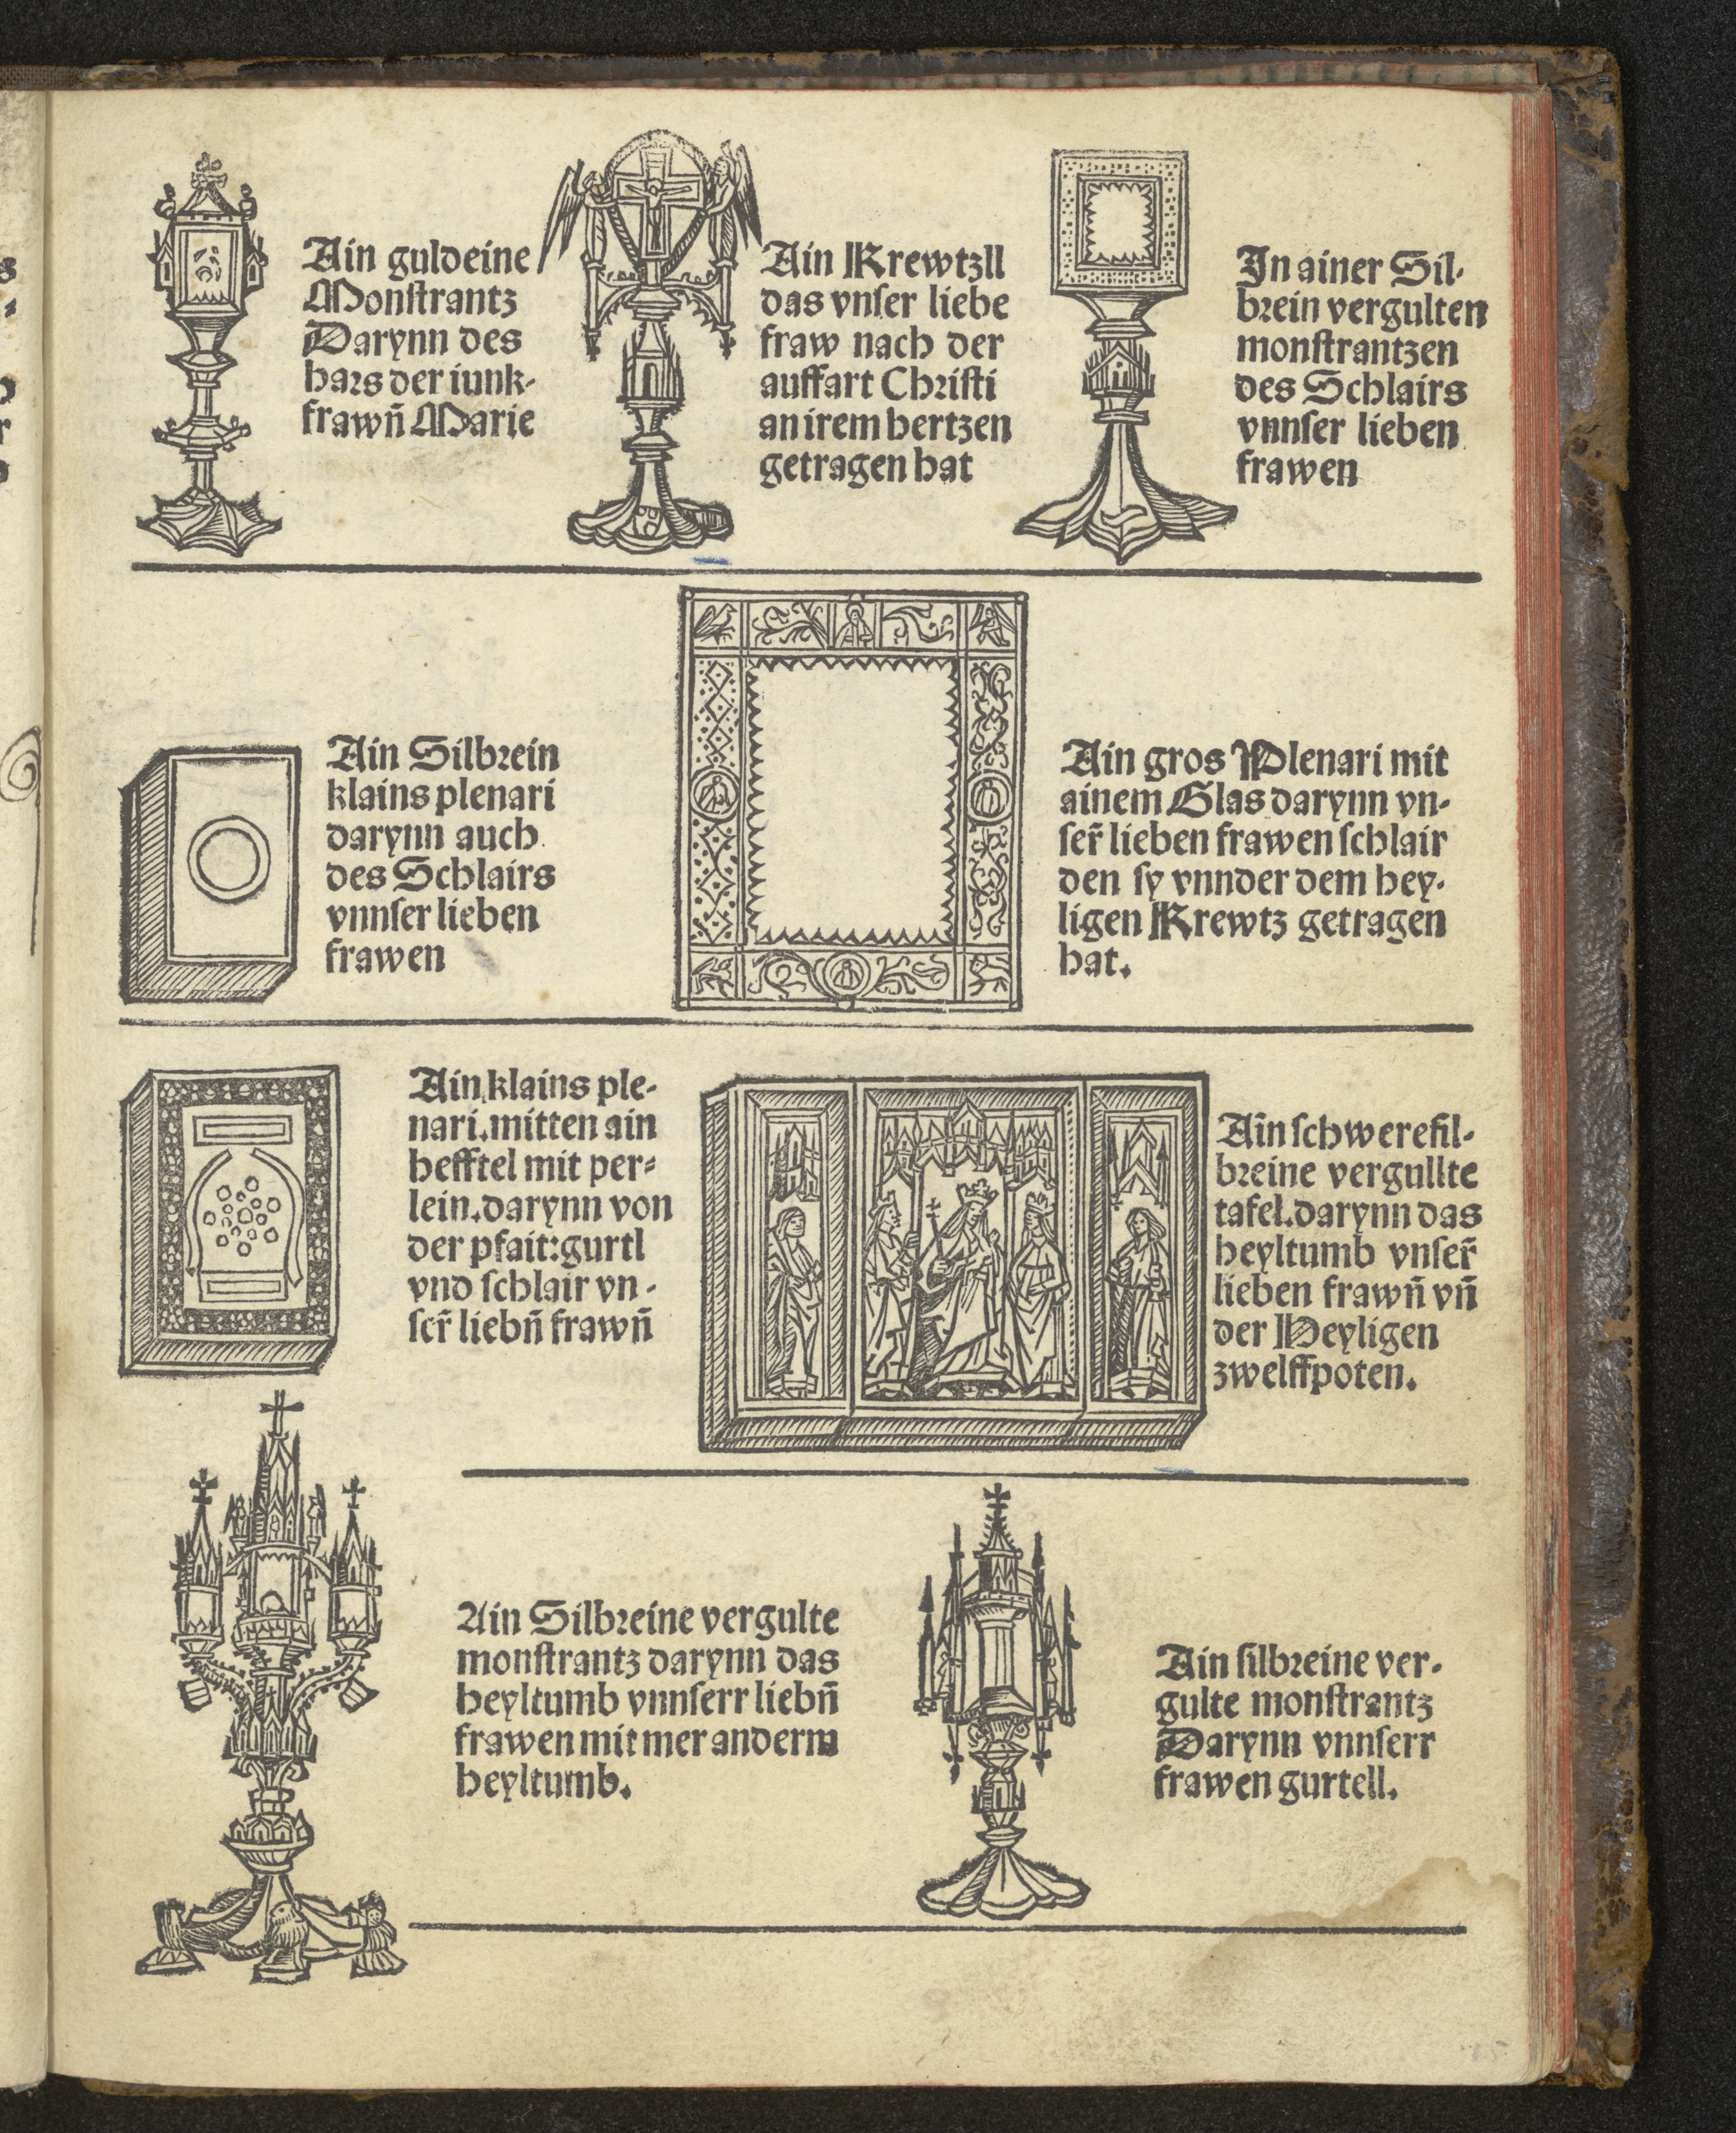 Ain guldeine
Monſtrantz
Darynn des
hars der iunk-
frawn̄ Marie
Ain Krewtzll
das vnſer liebe
fraw nach der
auffart Chriſti
an irem hertzen
getragen hat
In ainer Sil-
brein vergulten
monſtrantzen
des Schlairs
vnnſer lieben
frawen
Ain Silbrein
klains plenari
darynn auch
des Schlairs
vnnſer lieben
frawen
Ain gros Plenari mit
ainem Glas darynn vn-
ſer̄ lieben frawen ſchlair
den ſy vnnder dem hey-
ligen Krewtz getragen
hat.
Ain klains ple-
nari.mitten ain
hefftel mit per-
lein.darynn von
der pfait:gurtl
vnd ſchlair vn-
ſer̄ liebn̄ frawn̄
Ain ſchwere ſil-
breine vergullte
tafel.darynn das
heyltumb vnſer̄
lieben frawn̄ vn̄
der Heyligen
zwelffpoten.
Ain Silbreine vergulte
monſtrantz darynn das
heyltumb vnnſerr liebn̄
frawen mit mer anderm
heyltumb.
Ain ſilbreine ver-
gulte monſtrantz
Darynn vnnſerr
frawen gurtell.